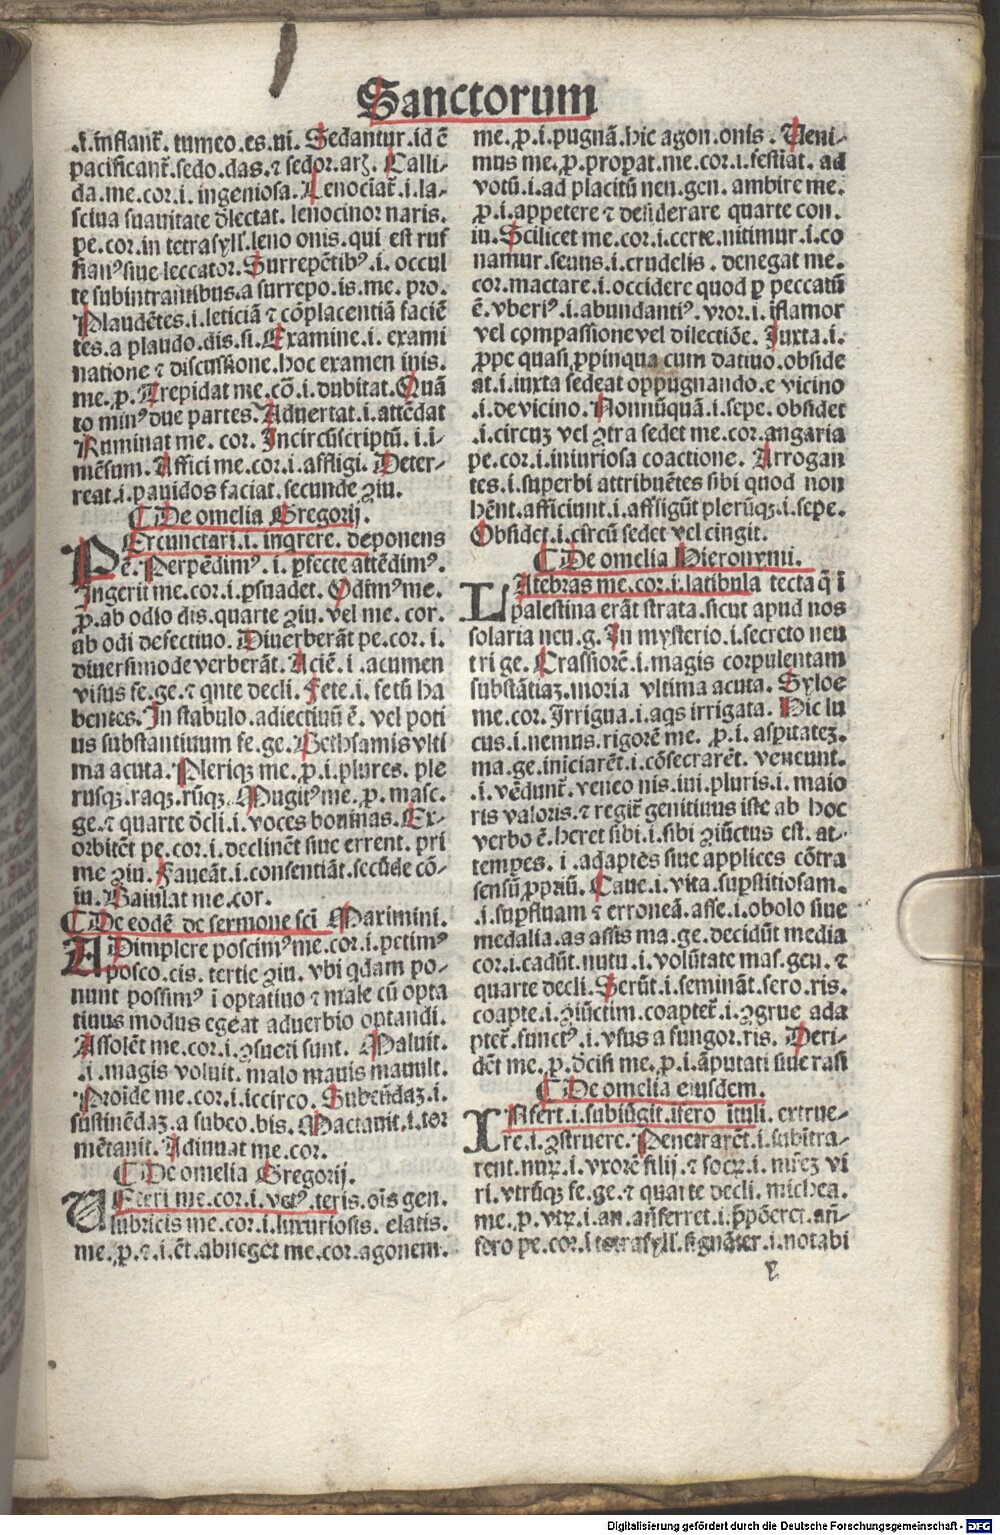 Sanctorum
.i. inflant᷑. tumeo.es.ui. Sedantur.id ē
pacificant᷑.sedo.das.⁊ sedor.arꝭ. Calli-
da.me.cor.i. ingeniosa. Lenociat᷑.i.la-
sciua suauitate dēlectat. lenocinor naris.
pe.cor.in tetrasyll̄.leno onis.qui est ruf
fianꝰsiue leccator. Surrepētibꝰ.i. occul
te subintrantibus.a surrepo.is.me. pro.
Plaudētes.i.leticiā ⁊ cōplacentiā faciē
tes.a plaudo.dis.si. Examine.i. exami
natione ⁊ discussione.hoc examen inis.
me.ꝓ. Trepidat me.cō.i.dubitat. Quā
to minꝰ due partes. Aduertat.i.attēdat
Ruminat me. cor. Incircūscriptū. i.i-
mēsum. Affici me.cor.i.affligi. Deter-
reat.i.pauidos faciat.secunde ꝯiu.
¶ De omelia Gregorij.
PErcunctari.i. inqrere. deponens
ē. Perpēdimꝰ. i. ꝑfecte attēdimꝰ.
Ingerit me.cor.i.ꝑsuadet. Odimꝰme.
ꝓ.ab odio dis.quarte ꝯiu.vel me. cor.
ab odi defectiuo. Diuerberāt pe.cor. i.
diuersimode verberāt. Aciē. i .acumen
visus fe.ge.⁊ qnte decli. Fete.i. fetū ha
bentes. In stabulo.adiectiuū ē. vel poti
us substantiuum fe.ge. Bethsamis vlti
ma acuta. Pleriqꝫ me.ꝓ.i.plures. ple
rusqꝫ.raqꝫ.rūqꝫ. Mugitꝰme.ꝓ. masc.
ge.⁊ quarte dēcli.i. voces bouinas. Ex-
orbitēt pe.cor.i.declinēt siue errent. pri
me ꝯiu. Faueāt.i.consentiāt.secūde cō-
iu. Baiulat me.cor.
¶ De eodē de sermone sci Maximini.
ADimplere poscimꝰme.cor.i.petimꝰ
posco.cis. tertie ꝯiu. vbi qdam po-
nunt possimꝰ i optatiuo ⁊ male cū opta
tiuus modus egeat aduerbio optandi.
Assolēt me.cor.i.ꝯsueti sunt. Maluit.
.i. magis voluit. malo mauis mauult.
Proīde me.cor.i.iccirco. Subeūdaꝫ.i.
sustinēdaꝫ.a subeo.bis. Mactauit.i.tor
mētauit. Adiuuat me.cor.
¶ De omelia Gregorij.
UEteri me.cor.i.vetꝰ.teris.ois gen.
lubricis me.cor.i.luxuriosis. elatis.
me.ꝓ.⁊.i.ēt.abneget me.cor.agonem.
me.ꝓ.i.pugnā.hic agon.onis. Ueni-
mus me.ꝓ.properat.me.cor.i.festiat. ad
votū.i.ad placitū neu.gen. ambire me.
ꝓ.i.appetere ⁊ desiderare quarte con.
iu. Scilicet me.cor.i.certe.nitimur.i.co
namur.seuus.i.crudelis . denegat me.
cor.mactare.i.occidere quod ꝑ peccatū
ē.vberiꝰ.i.abundantiꝰ. vror.i. iflamor
vel compassione vel dilectiōe. Juxta.i.
ꝓpe quasi ꝓpinqua cum datiuo.obside
at.i.iuxta sedeat oppugnando.e vicino
.i.de vicino. Nonnūquā.i.sepe. obsidet
.i.circuꝫ vel ꝯtra sedet me.cor.angaria
pe.cor.i.iniuriosa coactione. Arrogan
tes.i.superbi attribuētes sibi quod non
hēnt.afficiunt.i.affligūt plerūqꝫ.i.sepe.
Obsidet.i.circū sedet vel cingit.
¶ De omelia Hieronymi.
LAtebras me.cor.i.latibula tecta q̄ ī
palestina erāt strata.sicut apud nos
solaria neu.g. In mysterio.i.secreto neu
tri ge. Crassiorē.i.magis corpulentam
substātiaꝫ.moria vltima acuta. Syloe
me.cor. Irrigua.i.aqs irrigata. Hic lu
cus.i.nemus.rigorē me. ꝓ.i. asꝑitateꝫ.
ma.ge.iniciarēt.i.cōsecrarēt. veneunt.
.i.vēdunt᷑.veneo nis.iui.pluris.i. maio
ris valoris.⁊ regit᷑ genitiuus iste ab hoc
verbo ē.heret sibi.i.sibi ꝯiūctus est. at-
tempes. i .adaptes siue applices cōtra
sensū ꝓpriū. Caue.i.vita.suꝑstitiosam.
.i.suꝑfluam ⁊ erroneā.asse.i.obolo siue
medalia.as assis ma.ge.decidūt media
cor.i.cadūt.nutu.i.volūtate mas.gen. ⁊
quarte decli. Serūt.i.semināt.sero.ris.
coapte.i.ꝯiūctim.coaptet᷑.i.ꝯgrue ada
ptet᷑.functꝰ.i.vsus a fungor.ris. Deri-
dēt me.ꝓ.dēcisi me.ꝓ.i.āputati siue rasi
¶ De omelia eiusdem.
INfert.i.subiūgit.ifero ituli. extrue-
re.i.ꝯstruere. Penetrarēt.i.subītra-
rent.nuꝝ.i.vxorē filij.⁊ socꝝ.i. mr̄eꝫ vi
ri.vtrūqꝫ fe.ge.⁊ quarte decli. michea.
me.ꝓ.vtꝝ.i.an.anferret.i.p̄pōeret.an̄-
fero pe.cor.i tetrasyll̄.signāter.i.notabi
y
Digitalisierung gefördert durch die Deutsche Forschungsgemeinschaft - DFG